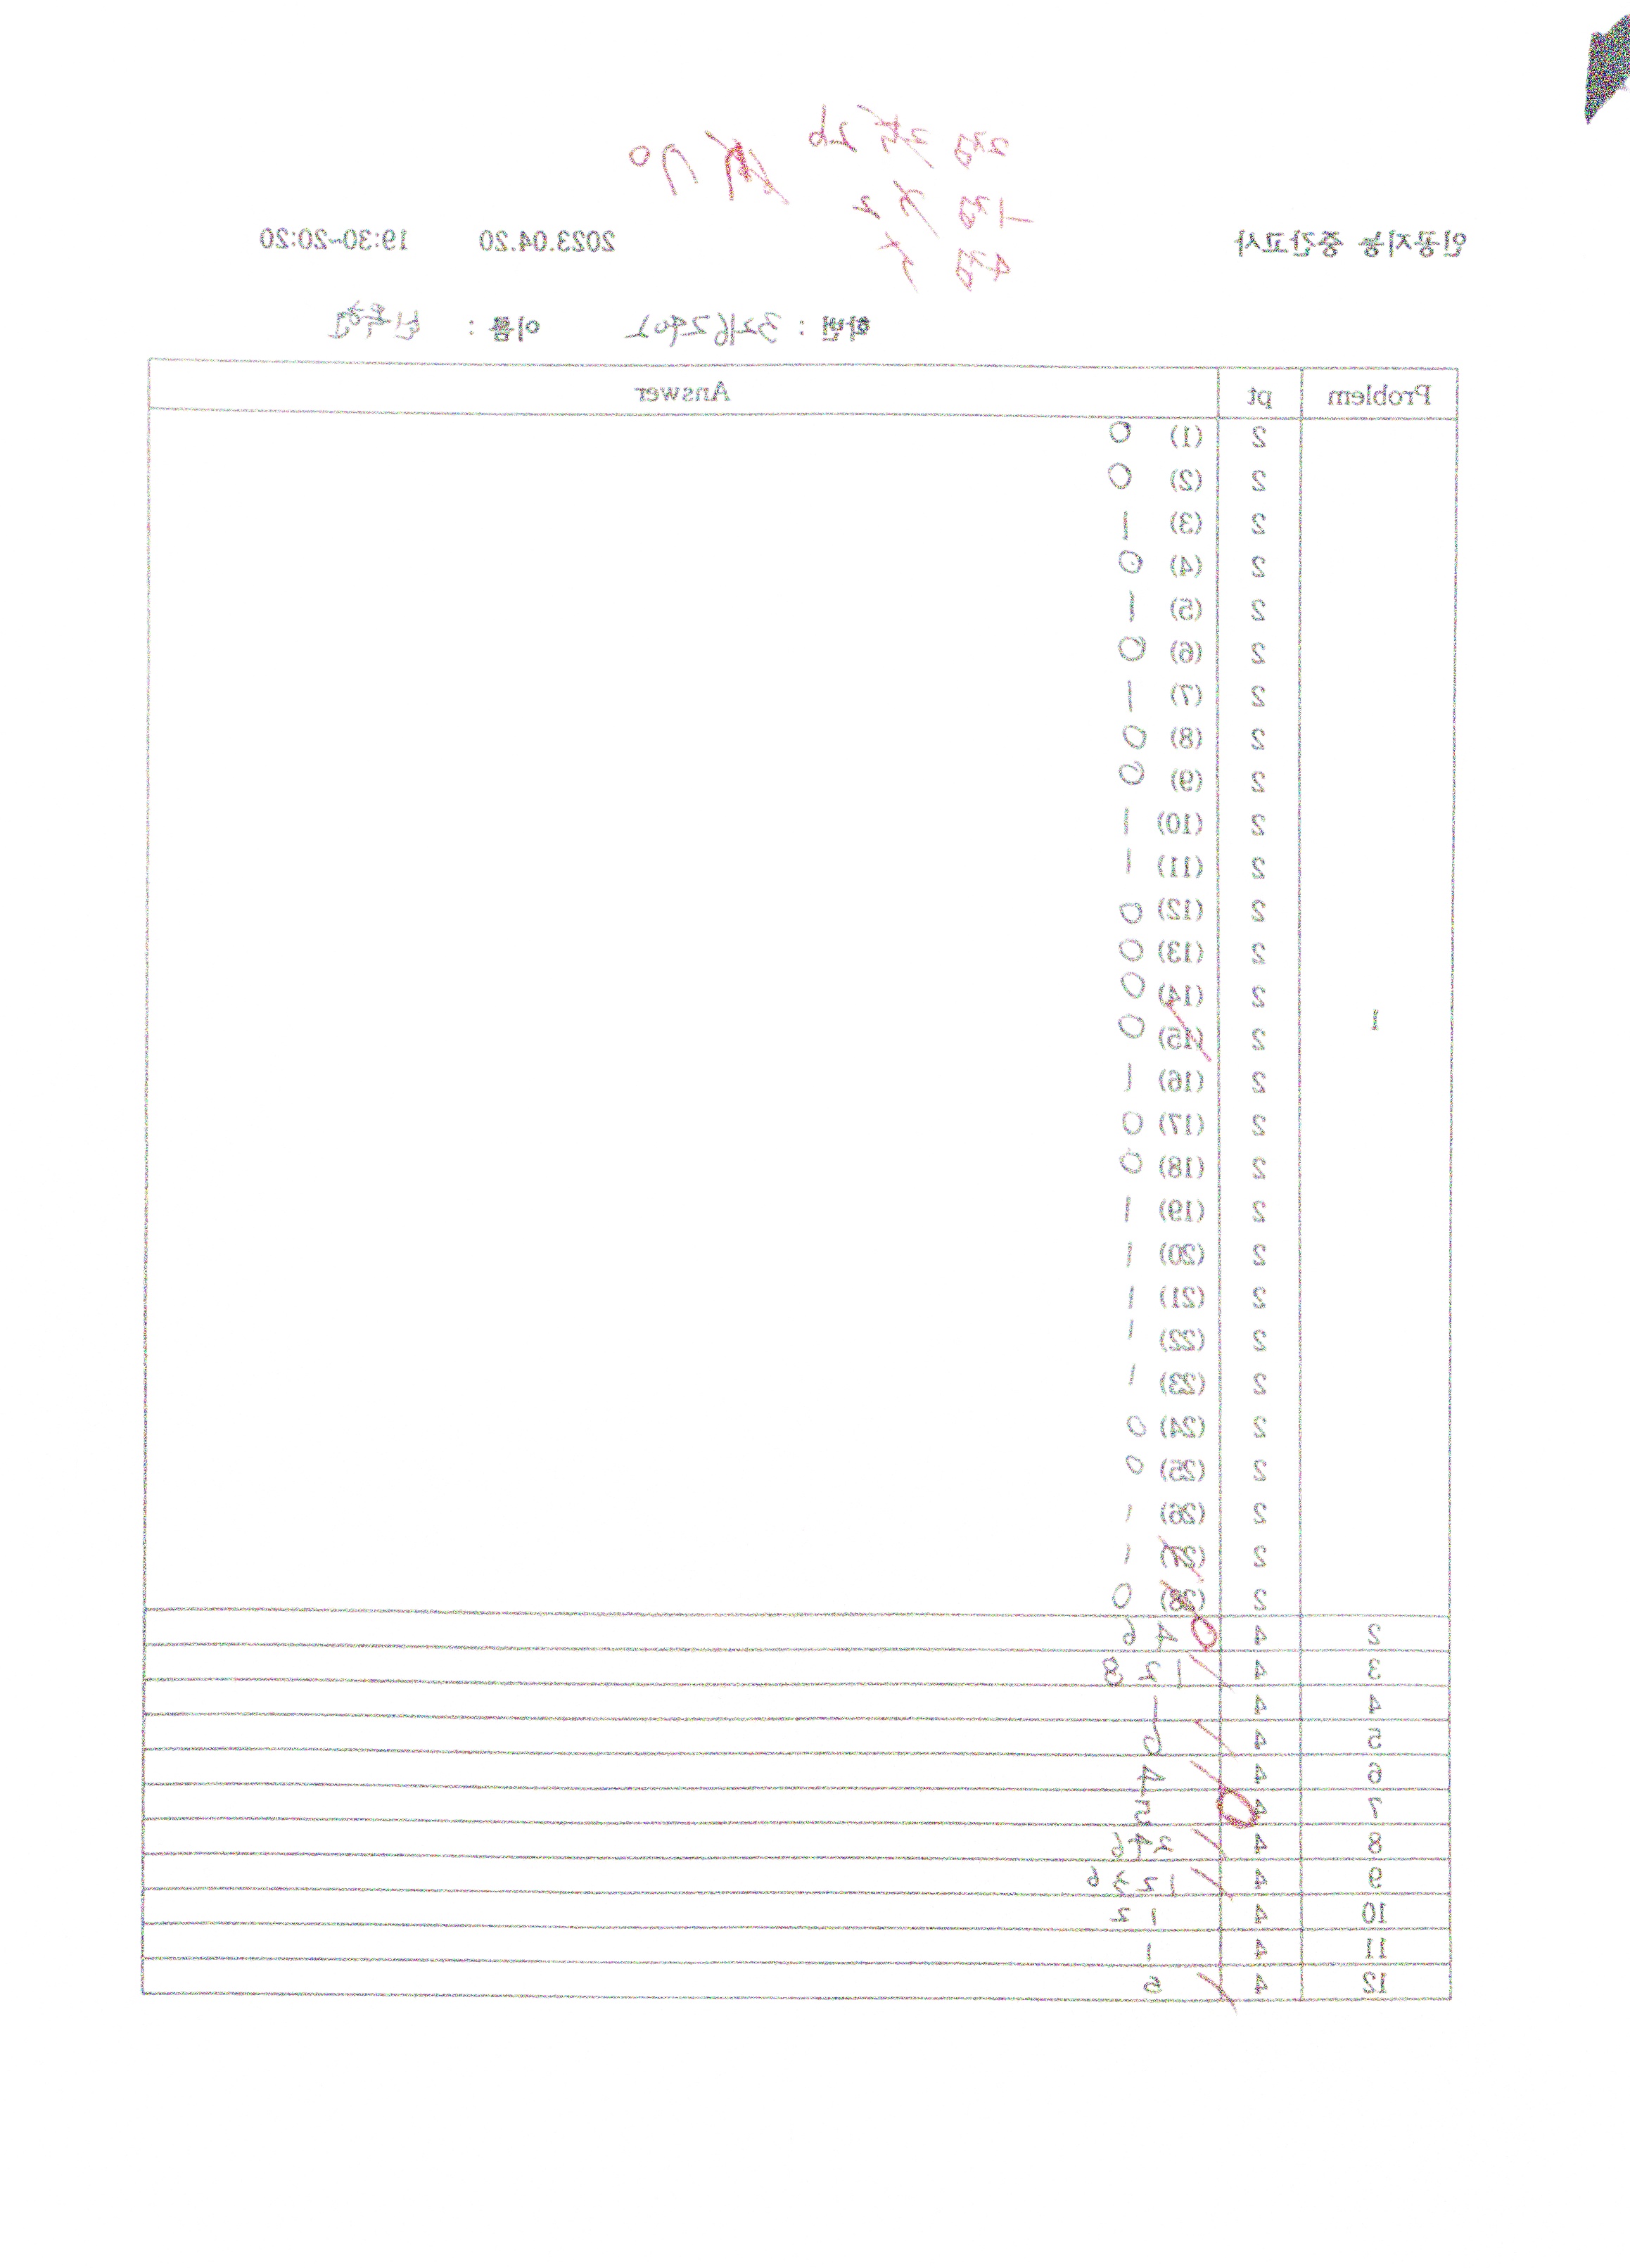 인공지능 중간고사 2023.04.20 19:30-20:20
학번 : 이름 :
Problem pt Answer
1
2 (1) 0
2 (2) 0
2 (3) 1
2 (4) 0
2 (5) 1
2 (6) 0
2 (7) 1
2 (8) 0
2 (9) 0
2 (10) 1
2 (11) 1
2 (12) 0
2 (13) 0
2 (14) 0
2 (15) 0
2 (16) 1
2 (17) 0
2 (18) 0
2 (19) 1
2 (20) 1
2 (21) 1
2 (22) 1
2 (23) 1
2 (24) 0
2 (25) 0
2 (26) 1
2 (27) 1
2 (28) 0
2 4 4 6
3 4 1 2 8
4 4 1
5 4 6
6 4 4
7 4 5
8 4 2 4 6
9 4 1 2 3 6
10 4 1 2
11 4 1
12 4 5